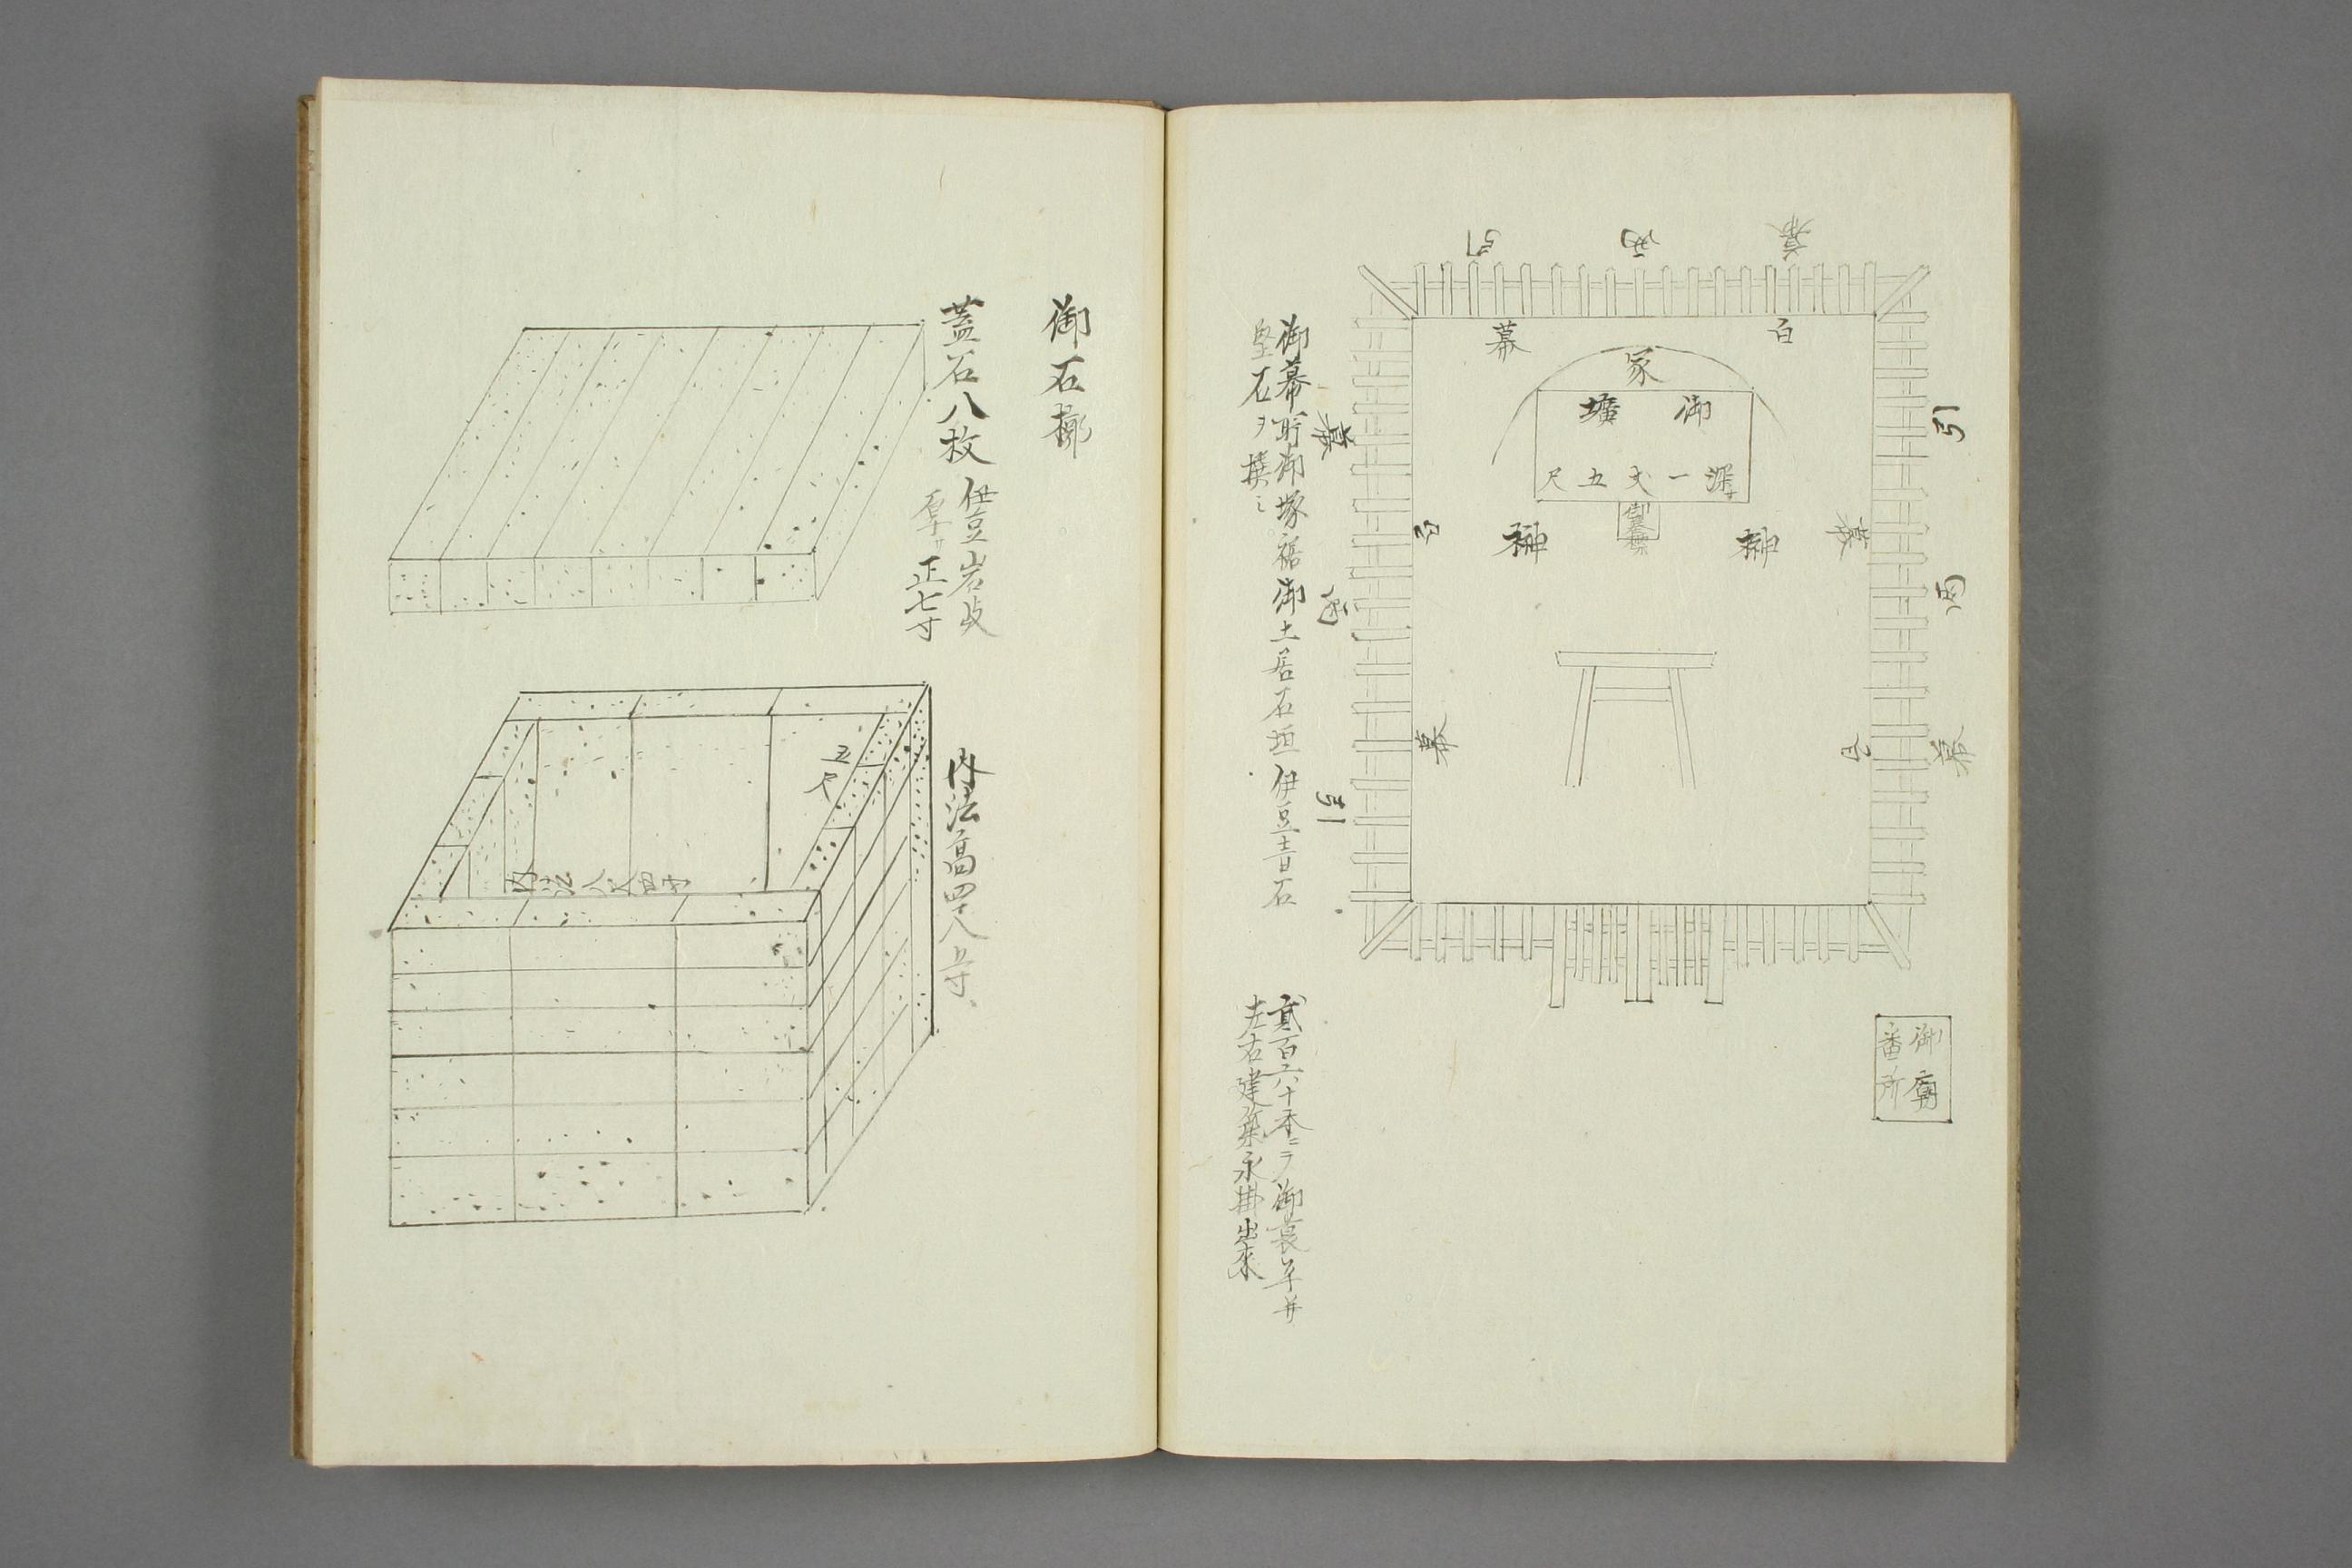 幕
両
引
白
幕
冢
御壙
深サ一丈五尺
御墓標
榊
榊
引
両
幕
幕
白
幕
両
引
白
幕
御廟
番所
御幕貯御塚裾御土居石垣伊豆青石
堅石ヲ撰ミ
弐百六十本ニテ御
左右建
出来
御石槨
蓋石八枚
伊豆岩岐
厚サ正七寸
内法高四尺五寸
五尺
内法八尺四寸